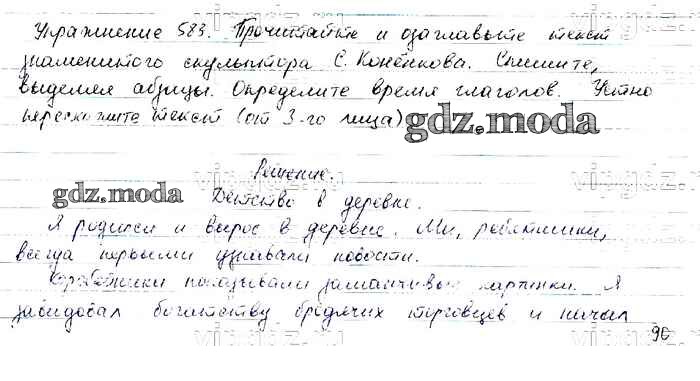 Упражнение 583. Прочитайте и озаглавьте текст
знаменитого скульптора С. Конёнкова. Спишите,
выделяя абзацы. Определите время глаголов. Устно
перескажите текст (от 3-го лица)
gdz.moda
Решение.
gdz.moda Детство в деревне.
Я родился и вырос в деревне. Мы, ребятишки,
всегда первыми узнавали новости.
Коробейники показывали заманчивые картинки. Я
завидовал богатству бродячих торговцев и начал
90